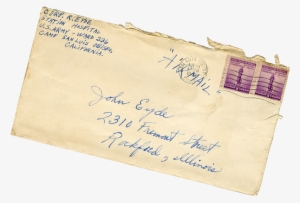 CORP. R. EYDE
STATION HOSPITAL
U.S. ARMY - WARD 326
CAMP SAN LUIS OBISPO
CALIFORNIA.
"AIR MAIL"
John Eyde
2310 Fremont Street
Rockford, Illinois